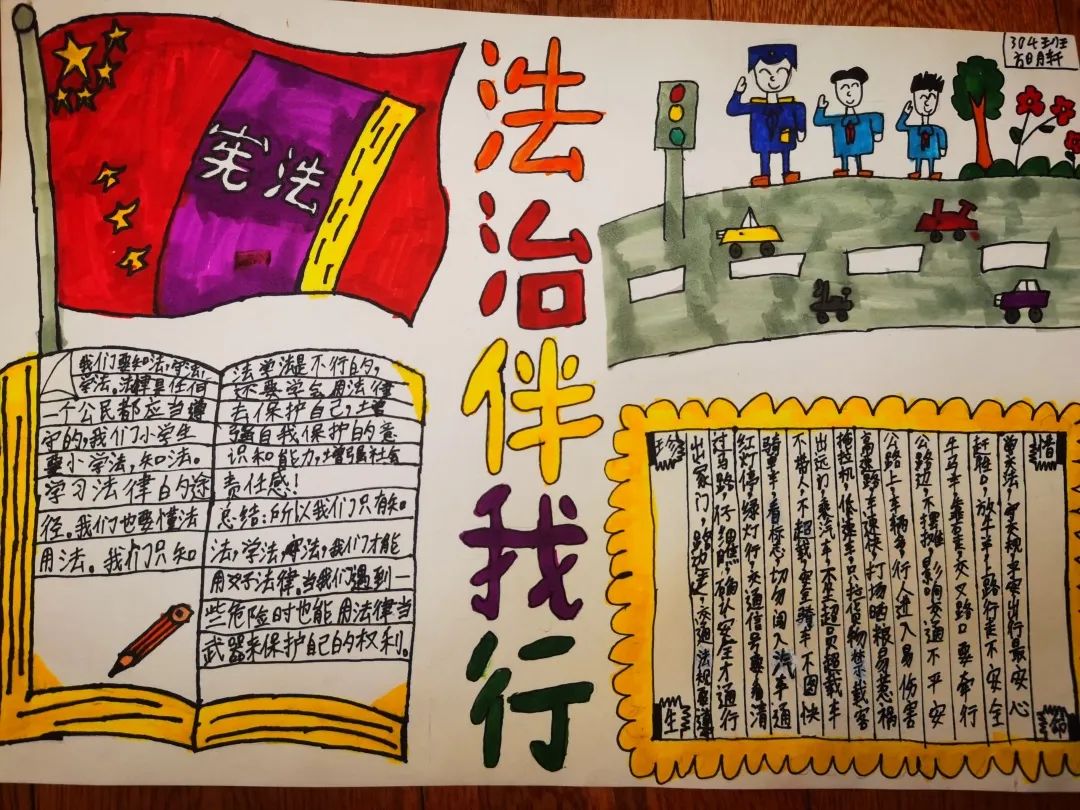 304班
方明轩
宪法
法治伴我行
我们要知法,守法,
学法。法律是任何
一个公民都应当遵
守的,我们小学生
要小学法,知法。
学习法律的途
径。我们也要懂法
用法。我们只知
法学法是不行的,
还要学会用法律
去保护自己,增
强自我保护的意
识和能力,增强社会
责任感!
总结:所以我们只有知
法,学法,守法,我们才能
用好法律。当我们遇到一
些危险时也能用法律当
武器来保护自己的权利。
珍惜
生命
出家门,路边走,交通法规要遵
过马路,仔细瞧,确认安全才通行
红灯停,绿灯行,交通信号要看清
骑单车,看标志,切勿闯入汽车道
不带人,不超载,安全骑车不图快
出远门,乘汽车,不坐超员超载车
拖拉机,低速车,只拉货物禁载客
高速路,车速快,打场晒粮易惹祸
公路上,车辆多,行人进入易伤害
公路边,不摆摊,影响交通不平安
牛马车,走,交叉路口要牵行
赶牲口,放牛羊,上路行走不安全
学交法,守交规,平安出行最安心